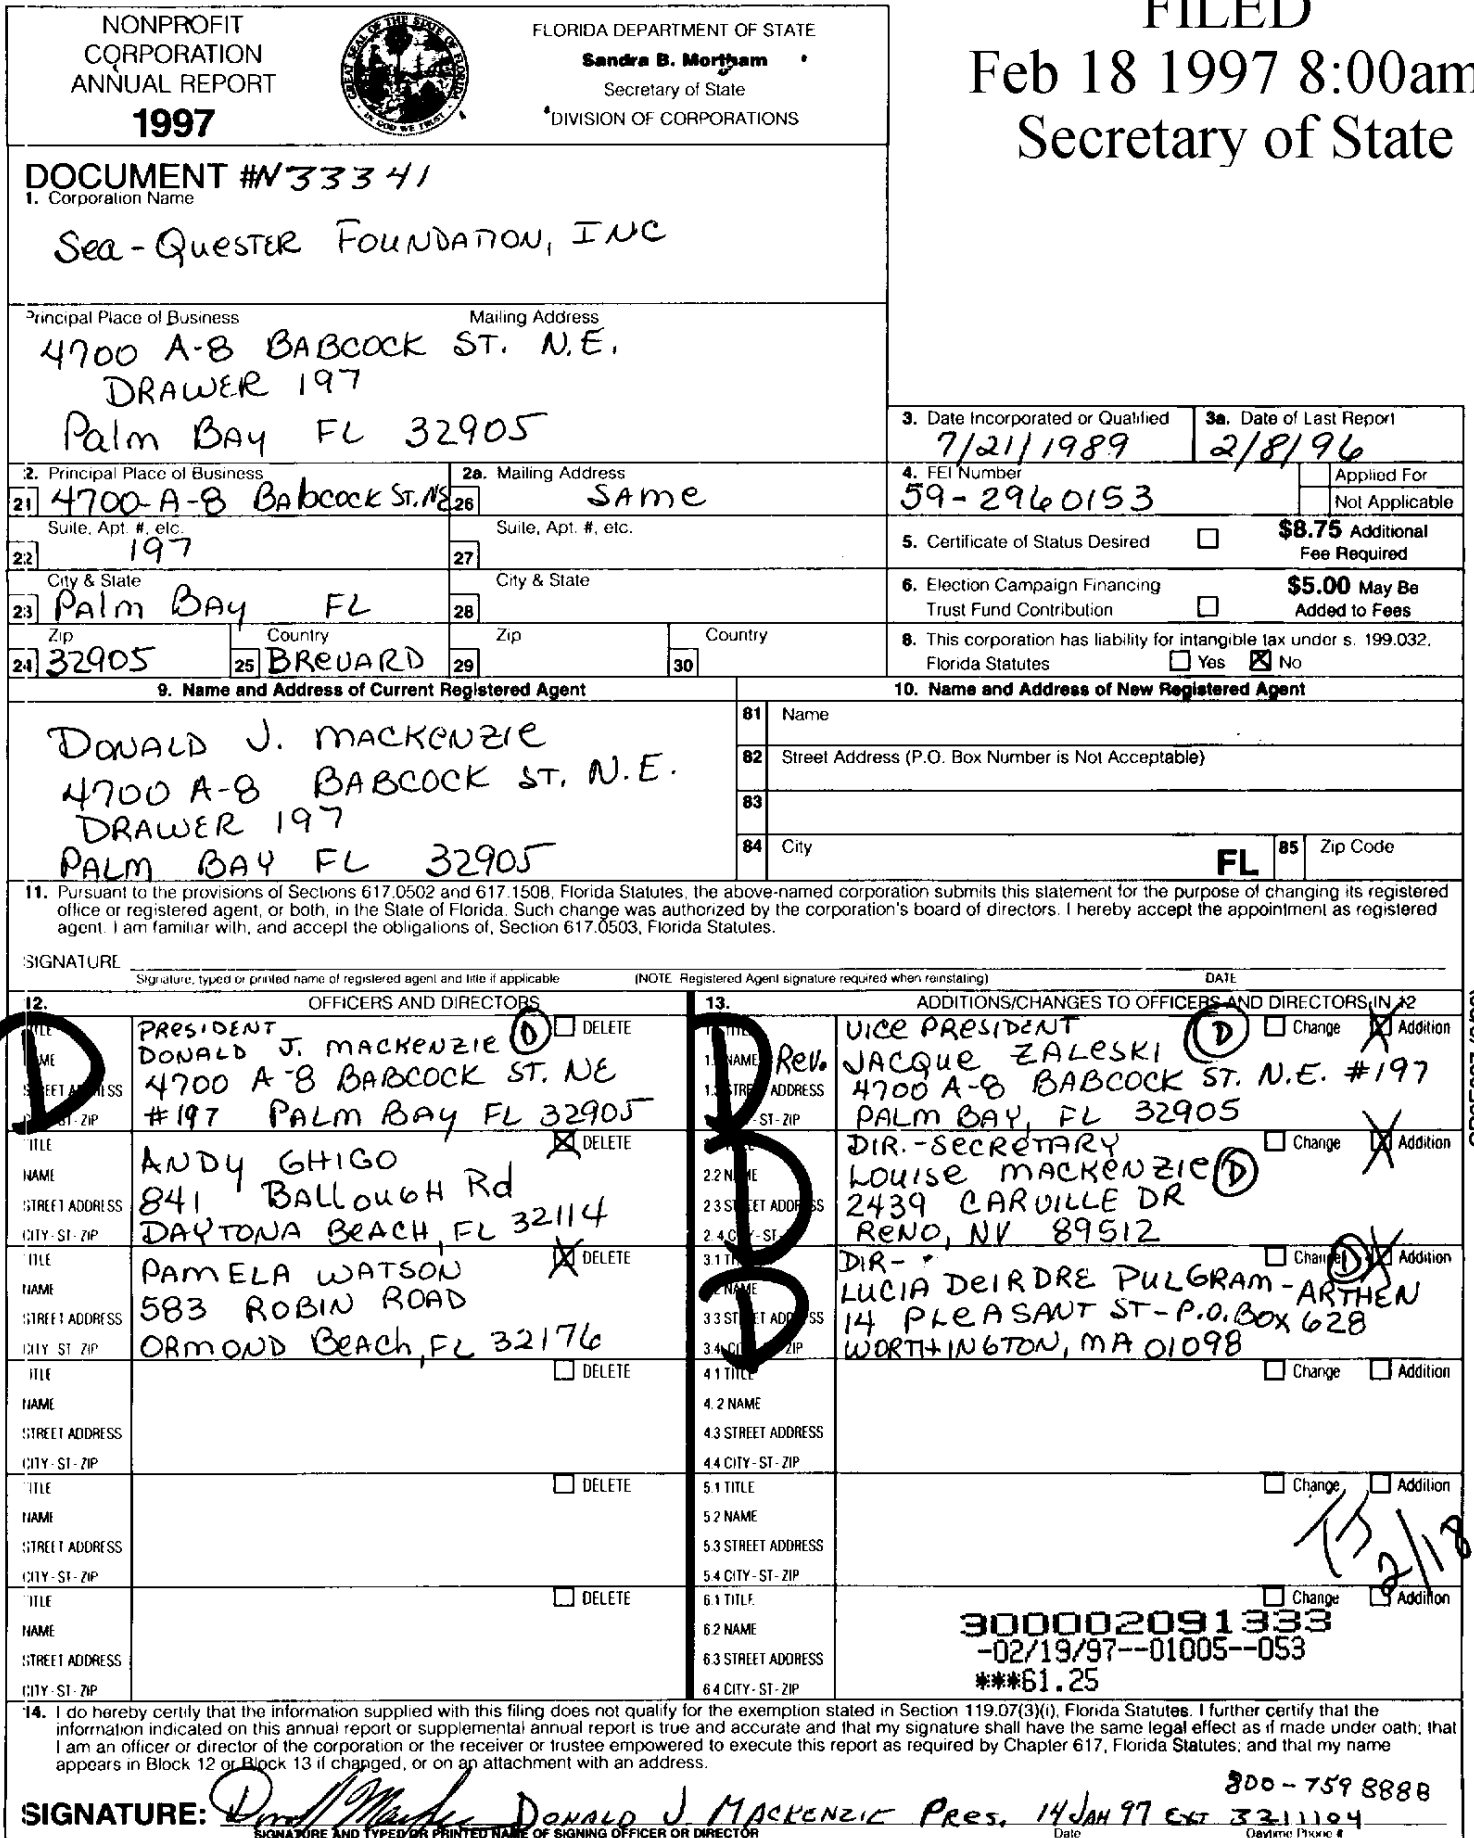 NONPROFIT
CORPORATION
ANNUAL REPORT
1997
GREAT SEAL OF THE STATE OF FLORIDA
IN GOD WE TRUST
FLORIDA DEPARTMENT OF STATE
Sandra B. Mortham
Secretary of State
DIVISION OF CORPORATIONS
FILED
Feb 18 1997 8:00am
Secretary of State
DOCUMENT #N33341
1. Corporation Name
Sea-Quester Foundation, Inc
Principal Place of Business Mailing Address
4700 A-8 BABCOCK ST. N.E.
DRAWER 197
Palm BAY FL 32905
3. Date Incorporated or Qualified 7/21/1989
3a. Date of Last Report 2/8/96
2. Principal Place of Business
21 4700-A-8 Babcock St. NE
2a. Mailing Address
26 SAME
4. FEI Number
59-2960153
Applied For
Not Applicable
Suite, Apt. #, etc.
22 197
Suite, Apt. #, etc.
27
5. Certificate of Status Desired
$8.75 Additional
Fee Required
City & State
23 Palm Bay FL
City & State
28
6. Election Campaign Financing
Trust Fund Contribution
$5.00 May Be
Added to Fees
Zip
24 32905
Country
25 BREVARD
Zip
29
Country
30
8. This corporation has liability for intangible tax under s. 199.032,
Florida Statutes Yes No
9. Name and Address of Current Registered Agent
DONALD J. MACKENZIE
4700 A-8 BABCOCK ST. N.E.
DRAWER 197
PALM BAY FL 32905
10. Name and Address of New Registered Agent
81 Name
82 Street Address (P.O. Box Number is Not Acceptable)
83
84 City FL 85 Zip Code
11. Pursuant to the provisions of Sections 617.0502 and 617.1508, Florida Statutes, the above-named corporation submits this statement for the purpose of changing its registered
office or registered agent, or both, in the State of Florida. Such change was authorized by the corporation's board of directors. I hereby accept the appointment as registered
agent. I am familiar with, and accept the obligations of, Section 617.0503, Florida Statutes.
SIGNATURE
Signature, typed or printed name of registered agent and title if applicable (NOTE Registered Agent signature required when reinstating) DATE
12. OFFICERS AND DIRECTORS
D
PRESIDENT D DELETE
DONALD J. MACKENZIE
4700 A-8 BABCOCK ST. NE
#197 PALM BAY FL 32905
TITLE DELETE
NAME ANDY GHIGO
STREET ADDRESS 841 BALLOUGH Rd
CITY-ST-ZIP DAYTONA BEACH, FL 32114
TITLE DELETE
NAME PAMELA WATSON
STREET ADDRESS 583 ROBIN ROAD
CITY-ST-ZIP ORMOND BEACH, FL 32176
TITLE DELETE
NAME
STREET ADDRESS
CITY-ST-ZIP
TITLE DELETE
NAME
STREET ADDRESS
CITY-ST-ZIP
TITLE DELETE
NAME
STREET ADDRESS
CITY-ST-ZIP
13. ADDITIONS/CHANGES TO OFFICERS AND DIRECTORS IN 12
D
VICE PRESIDENT D Change Addition
NAME Rev. JACQUE ZALESKI
ADDRESS 4700 A-8 BABCOCK ST. N.E. #197
-ST-ZIP PALM BAY, FL 32905
D
DIR.-SECRETARY Change Addition
LOUISE MACKENZIE D
2439 CARVILLE DR
RENO, NV 89512
D
DIR- Change D Addition
LUCIA DEIRDRE PULGRAM-ARTHEN
14 PLEASANT ST-P.O. BOX 628
WORTHINGTON, MA 01098
4.1 TITLE Change Addition
4.2 NAME
4.3 STREET ADDRESS
4.4 CITY-ST-ZIP
5.1 TITLE Change Addition
5.2 NAME
5.3 STREET ADDRESS
5.4 CITY-ST-ZIP
2/18
6.1 TITLE Change Addition
6.2 NAME
6.3 STREET ADDRESS
6.4 CITY-ST-ZIP
300002091333
-02/19/97--01005--053
***61.25
14. I do hereby certify that the information supplied with this filing does not qualify for the exemption stated in Section 119.07(3)(i), Florida Statutes. I further certify that the
information indicated on this annual report or supplemental annual report is true and accurate and that my signature shall have the same legal effect as if made under oath; that
I am an officer or director of the corporation or the receiver or trustee empowered to execute this report as required by Chapter 617, Florida Statutes; and that my name
appears in Block 12 or Block 13 if changed, or on an attachment with an address.
800-759 8888
SIGNATURE: DONALD J MACKENZIE PRES. 14 JAN 97 EXT 3211104
SIGNATURE AND TYPED OR PRINTED NAME OF SIGNING OFFICER OR DIRECTOR Date Daytime Phone #